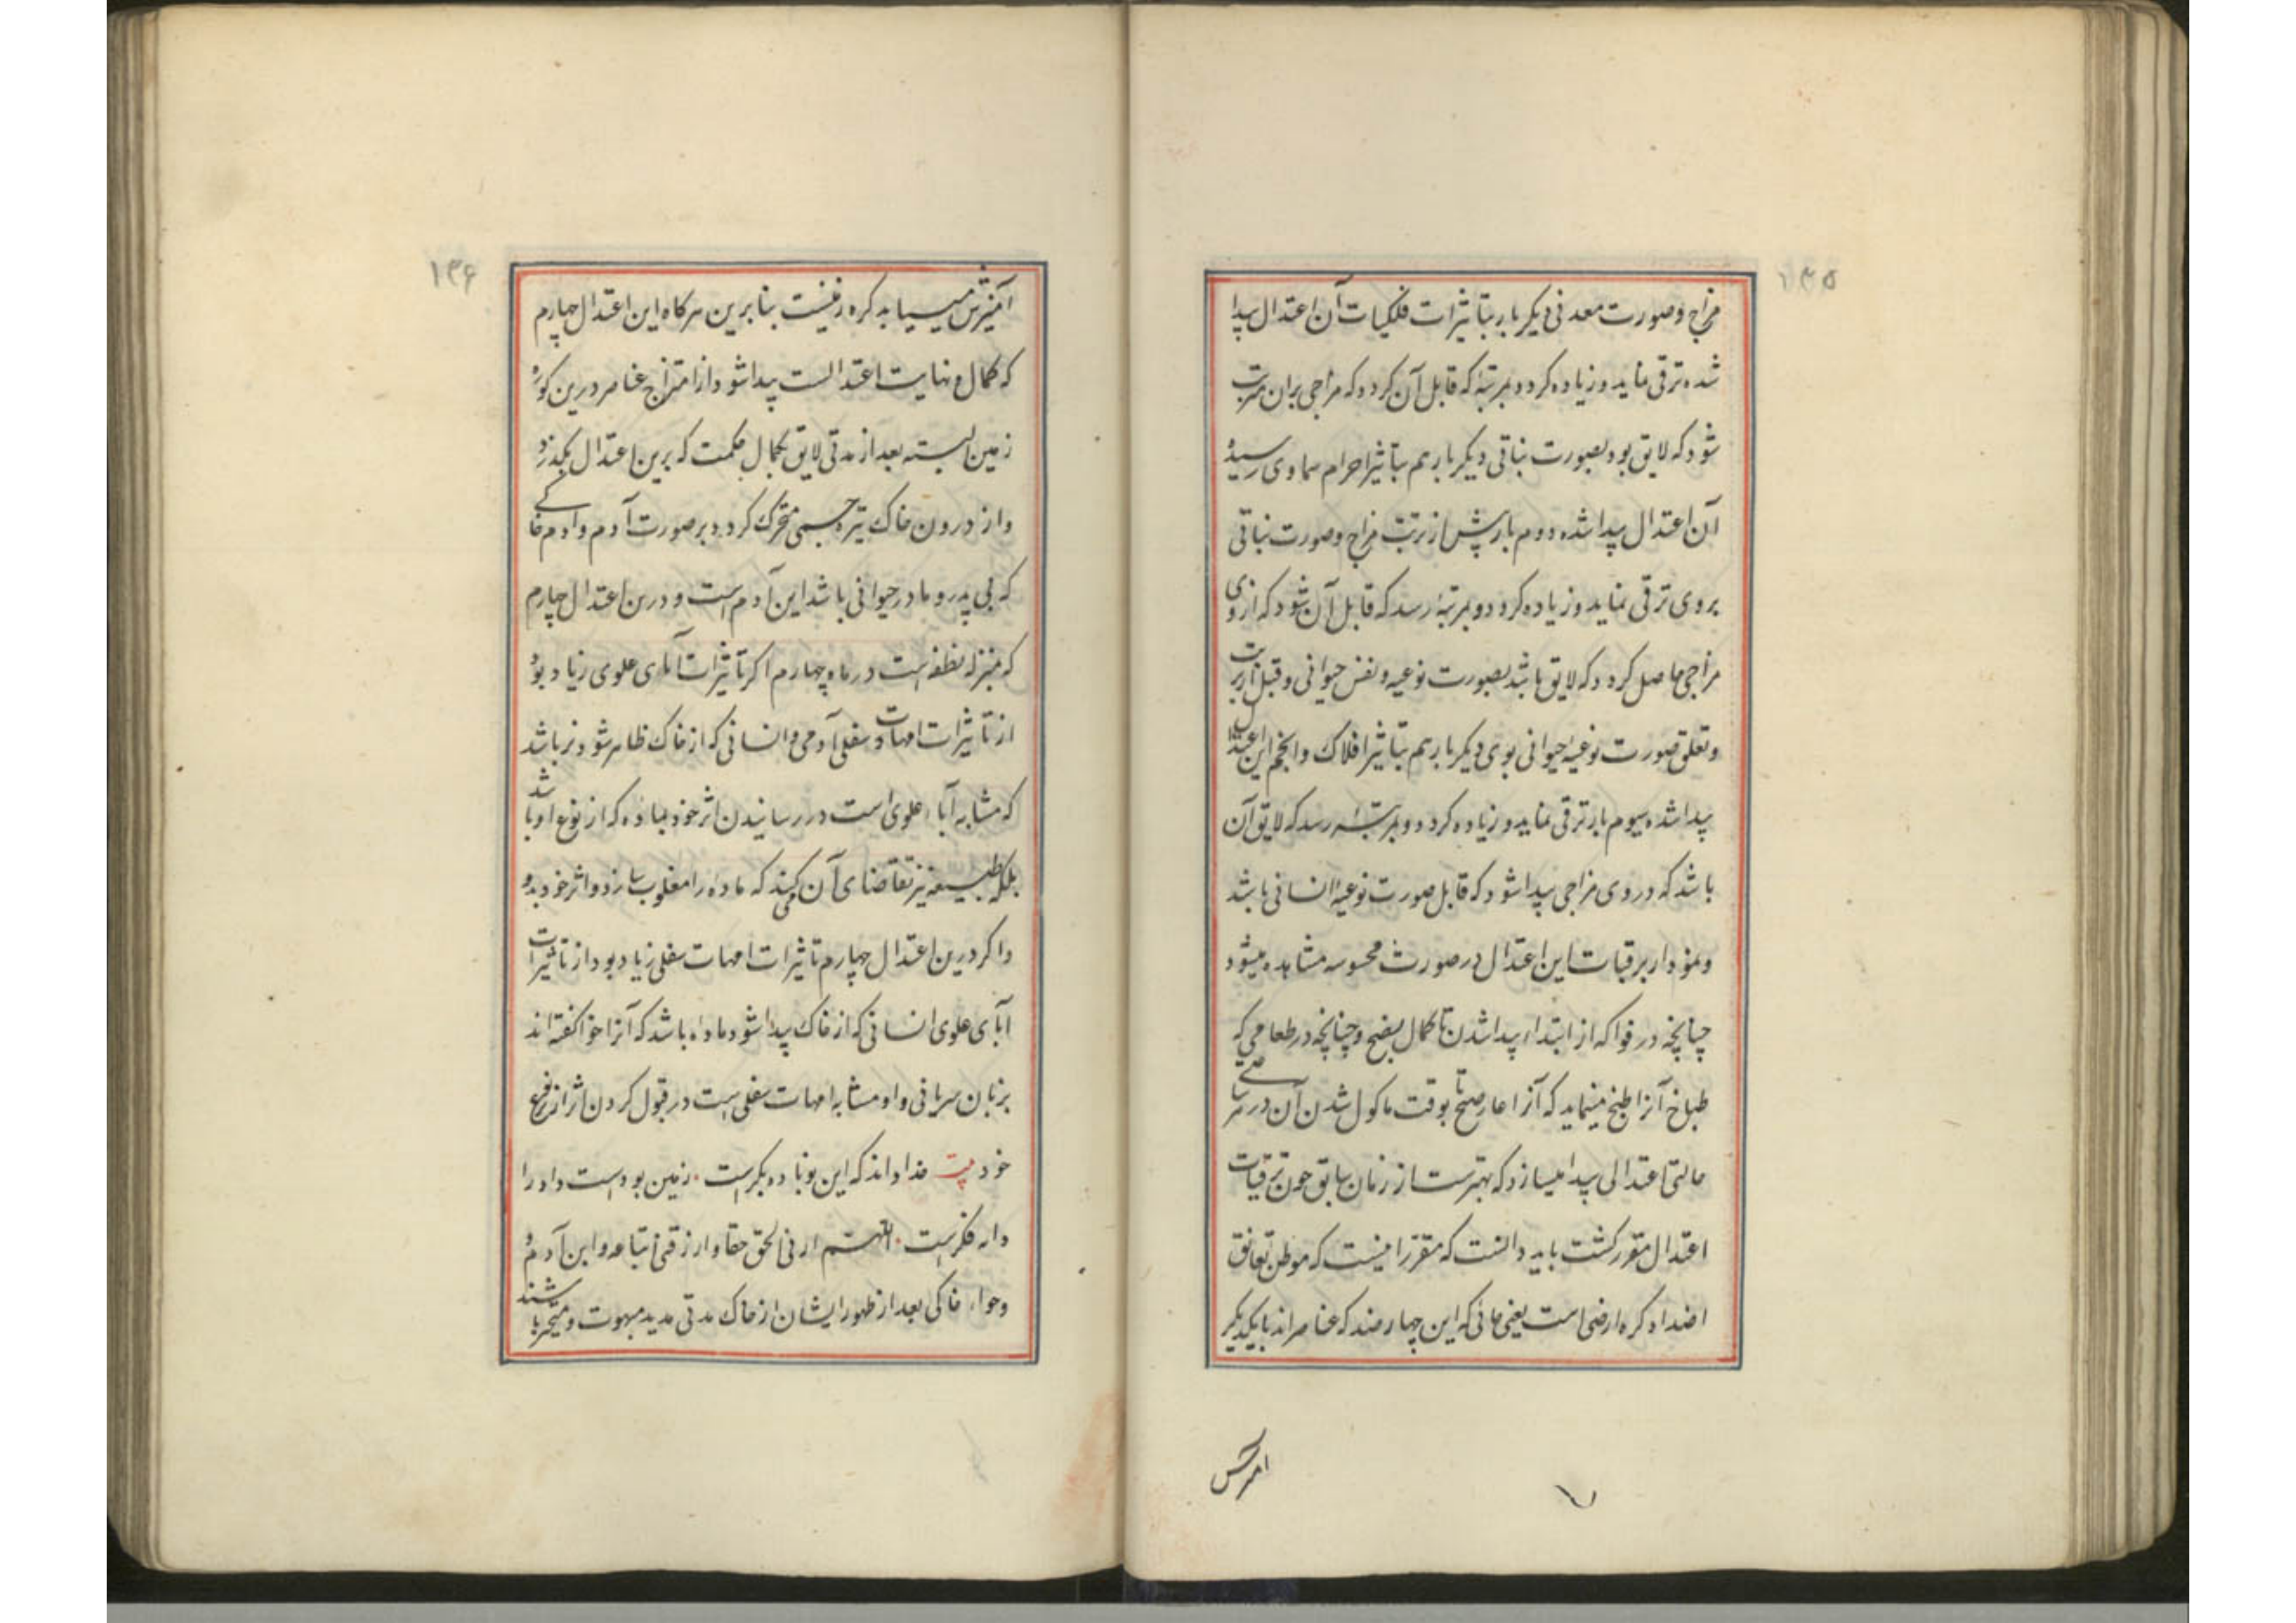 ۱۳۵
مزاج و صورت معدنی دیکر بار بتأثیرات فلکیات آن اعتدال پیدا
شده ترقی نماید و زیاده کردد و بمرتبهٔ که قابل آن کردد که مزاجی بران مترتب
شود که لایق بود بصورت نباتی دیکر بار هم بتأثیر اجرام سماوی رسیده
آن اعتدال پیدا شده دوم بار پیش از ترتب مزاج و صورت نباتی
بروی ترقی نماید و زیاده کردد و بمرتبهٔ رسد که قابل آن شود که ازوی
مزاجی حاصل کردد که لایق باشد بصورت نوعیه و نفس حیوانی و قبل از ترتب
و تعلق صورت نوعیهٔ حیوانی بوی دیکر بار هم بتأثیر افلاک و انجم این اعتدال
پیدا شده سیوم بار ترقی نماید و زیاده کردد و بمرتبهٔ رسد که لایق آن
باشد که در وی مزاجی پیدا شود که قابل صورت نوعیهٔ انسانی باشد
و نمودار برقیات این اعتدال در صورت محسوسه مشاهده میشود
چنانچه در فواکه از ابتداء پیدا شدن تا کمال بنضج و چنانچه در طعامی که
طباخ آنرا طبخ مینماید که آنرا تا بوقت ماکول شدن آن در هر ساعتی
حالتی اعتدالی پیدا میسازد که بهترست از زمان سابق چون ترقیات
اعتدال مقرر کشت باید دانست که مقرر اینست که موطن تعانق
اضداد کره ارضی است یعنی مانی که این چهار ضد که عناصر اند با یکدیکر
امیزش
۱۳۶
آمیزش مییابد کره زمینست بنابرین هر کاه این اعتدال چهارم
که کمال و نهایت اعتدالست پیدا شود از امتزاج عناصر درین کوره
زمین بسته بعد از مدتی لایق بکمال حکمت که برین اعتدال بکذرد
و از درون خاک تیره جسمی متحرک کردد بر صورت آدم و آدم خاکی
که بی پدر و مادر حیوانی باشد این آدم است و درین اعتدال چهارم
که بمنزله نطفه است در ماه چهارم اکر تأثیرات آبای علوی زیاد بود
از تأثیرات امهات سفلی آدمی و انسانی که از خاک ظاهر شود نر باشد
که مشابه آباء علوی است در رسانیدن اثر خود بماده که از نوع او باشد
بلکه طبیعه نیز تقاضای آن میکند که ماده را مغلوب سازد و اثر خود بدو
و اکر درین اعتدال چهارم تأثیرات امهات سفلی زیاد بود از تأثیرات
آبای علوی انسانی که از خاک پیدا شود ماده باشد که آنرا حوا کفته اند
بزبان سریانی و او مشابه امهات سفلی است در قبول کردن اثر از نوع
خود بیت خدا داند که این بونا ده بکرست . زمین بودست و او را
دار فکرست . اللهم ارنی الحق حقا و ارزقنی اتباعه و این آدم و
وحواء خاکی بعد از ظهور ایشان از خاک مدتی مدید مبهوت و متحیر باشند